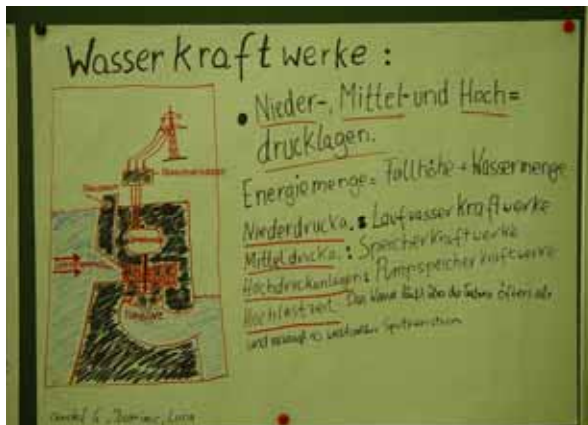 Wasserkraftwerke:
• Nieder-, Mittel- und Hoch=
drucklagen.
Energiemenge = Fallhöhe + Wassermenge
Niederdrucka.: Laufwasserkraftwerke
Mitteldrucka.: Speicherkraftwerke
Hochdruckanlagen: Pumpspeicherkraftwerke
Hochlastzeit: Das Wasser läuft über die öfters ab
und erzeugt so wertvollen Spitzenstrom
Turbine